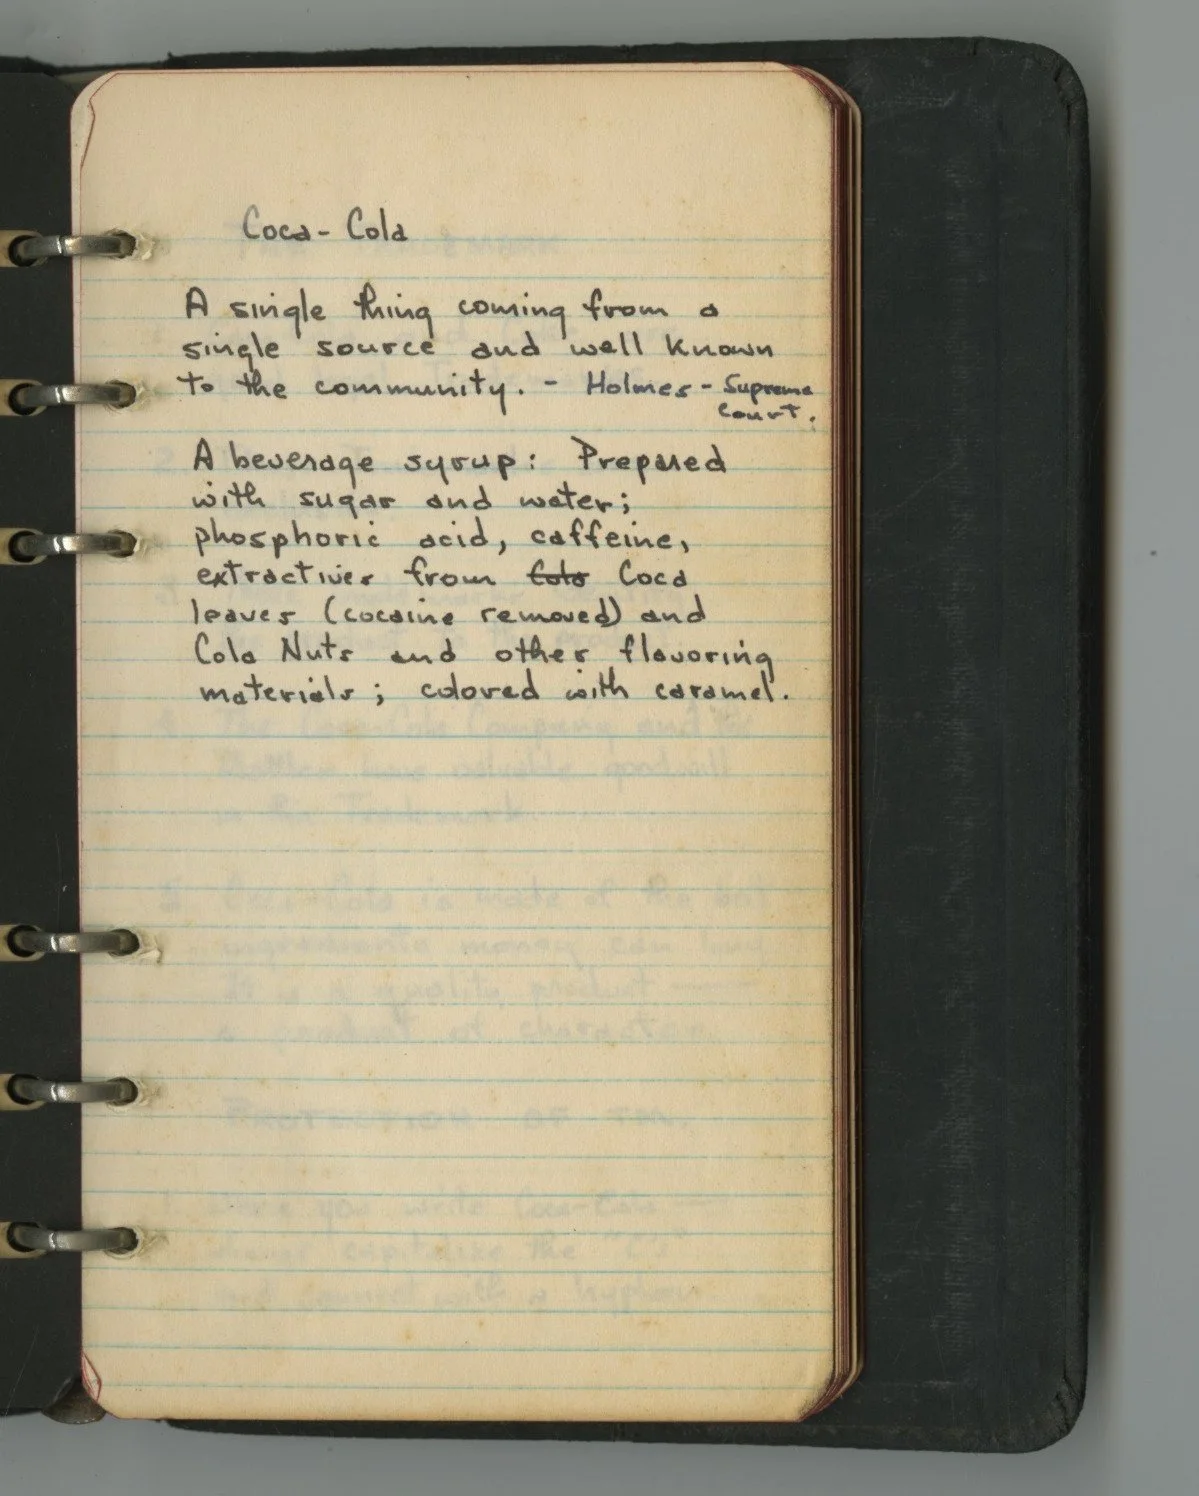 Coca-Cola
A single thing coming from a
single source and well known
to the community. - Holmes - Supreme
Court.
A beverage syrup: Prepared
with sugar and water;
phosphoric acid, caffeine,
extractives from Cola Coca
leaves (cocaine removed) and
Cola Nuts and other flavoring
materials; colored with caramel.